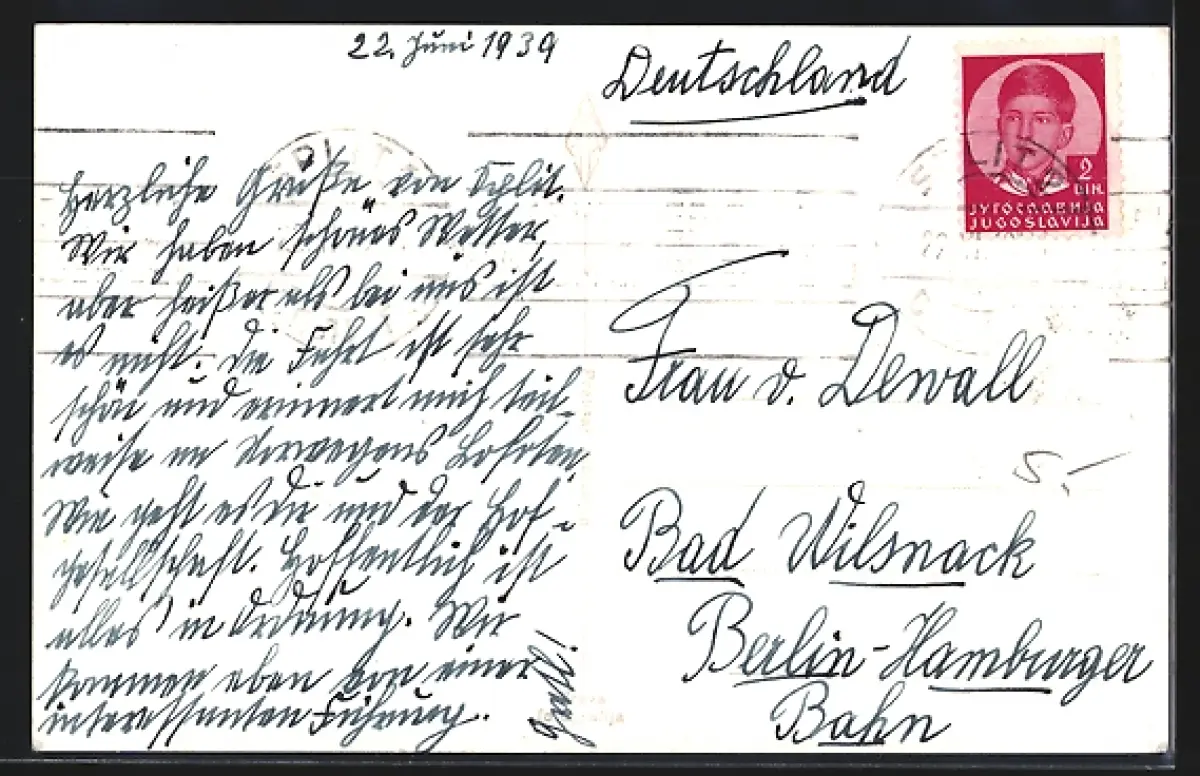 22. Juni 1939
Deutschland
2
DIN.
ЈУГОСЛАВИЈА
JUGOSLAVIJA
Herzliche Grüße von Split.
Wir haben schönes Wetter,
aber heißer als bei uns ist
es nicht. Die Fahrt ist sehr
schön und erinnert mich teil-
weise an Norwegens Lofoten.
Wie geht es Dir und der Hof-
gesellschaft. Hoffentlich ist
alles in Ordnung. Wir
kommen eben von einer
interessanten Führung.
Frau v. Dewall
5.-
Bad Wilsnack
Berlin-Hamburger
Bahn